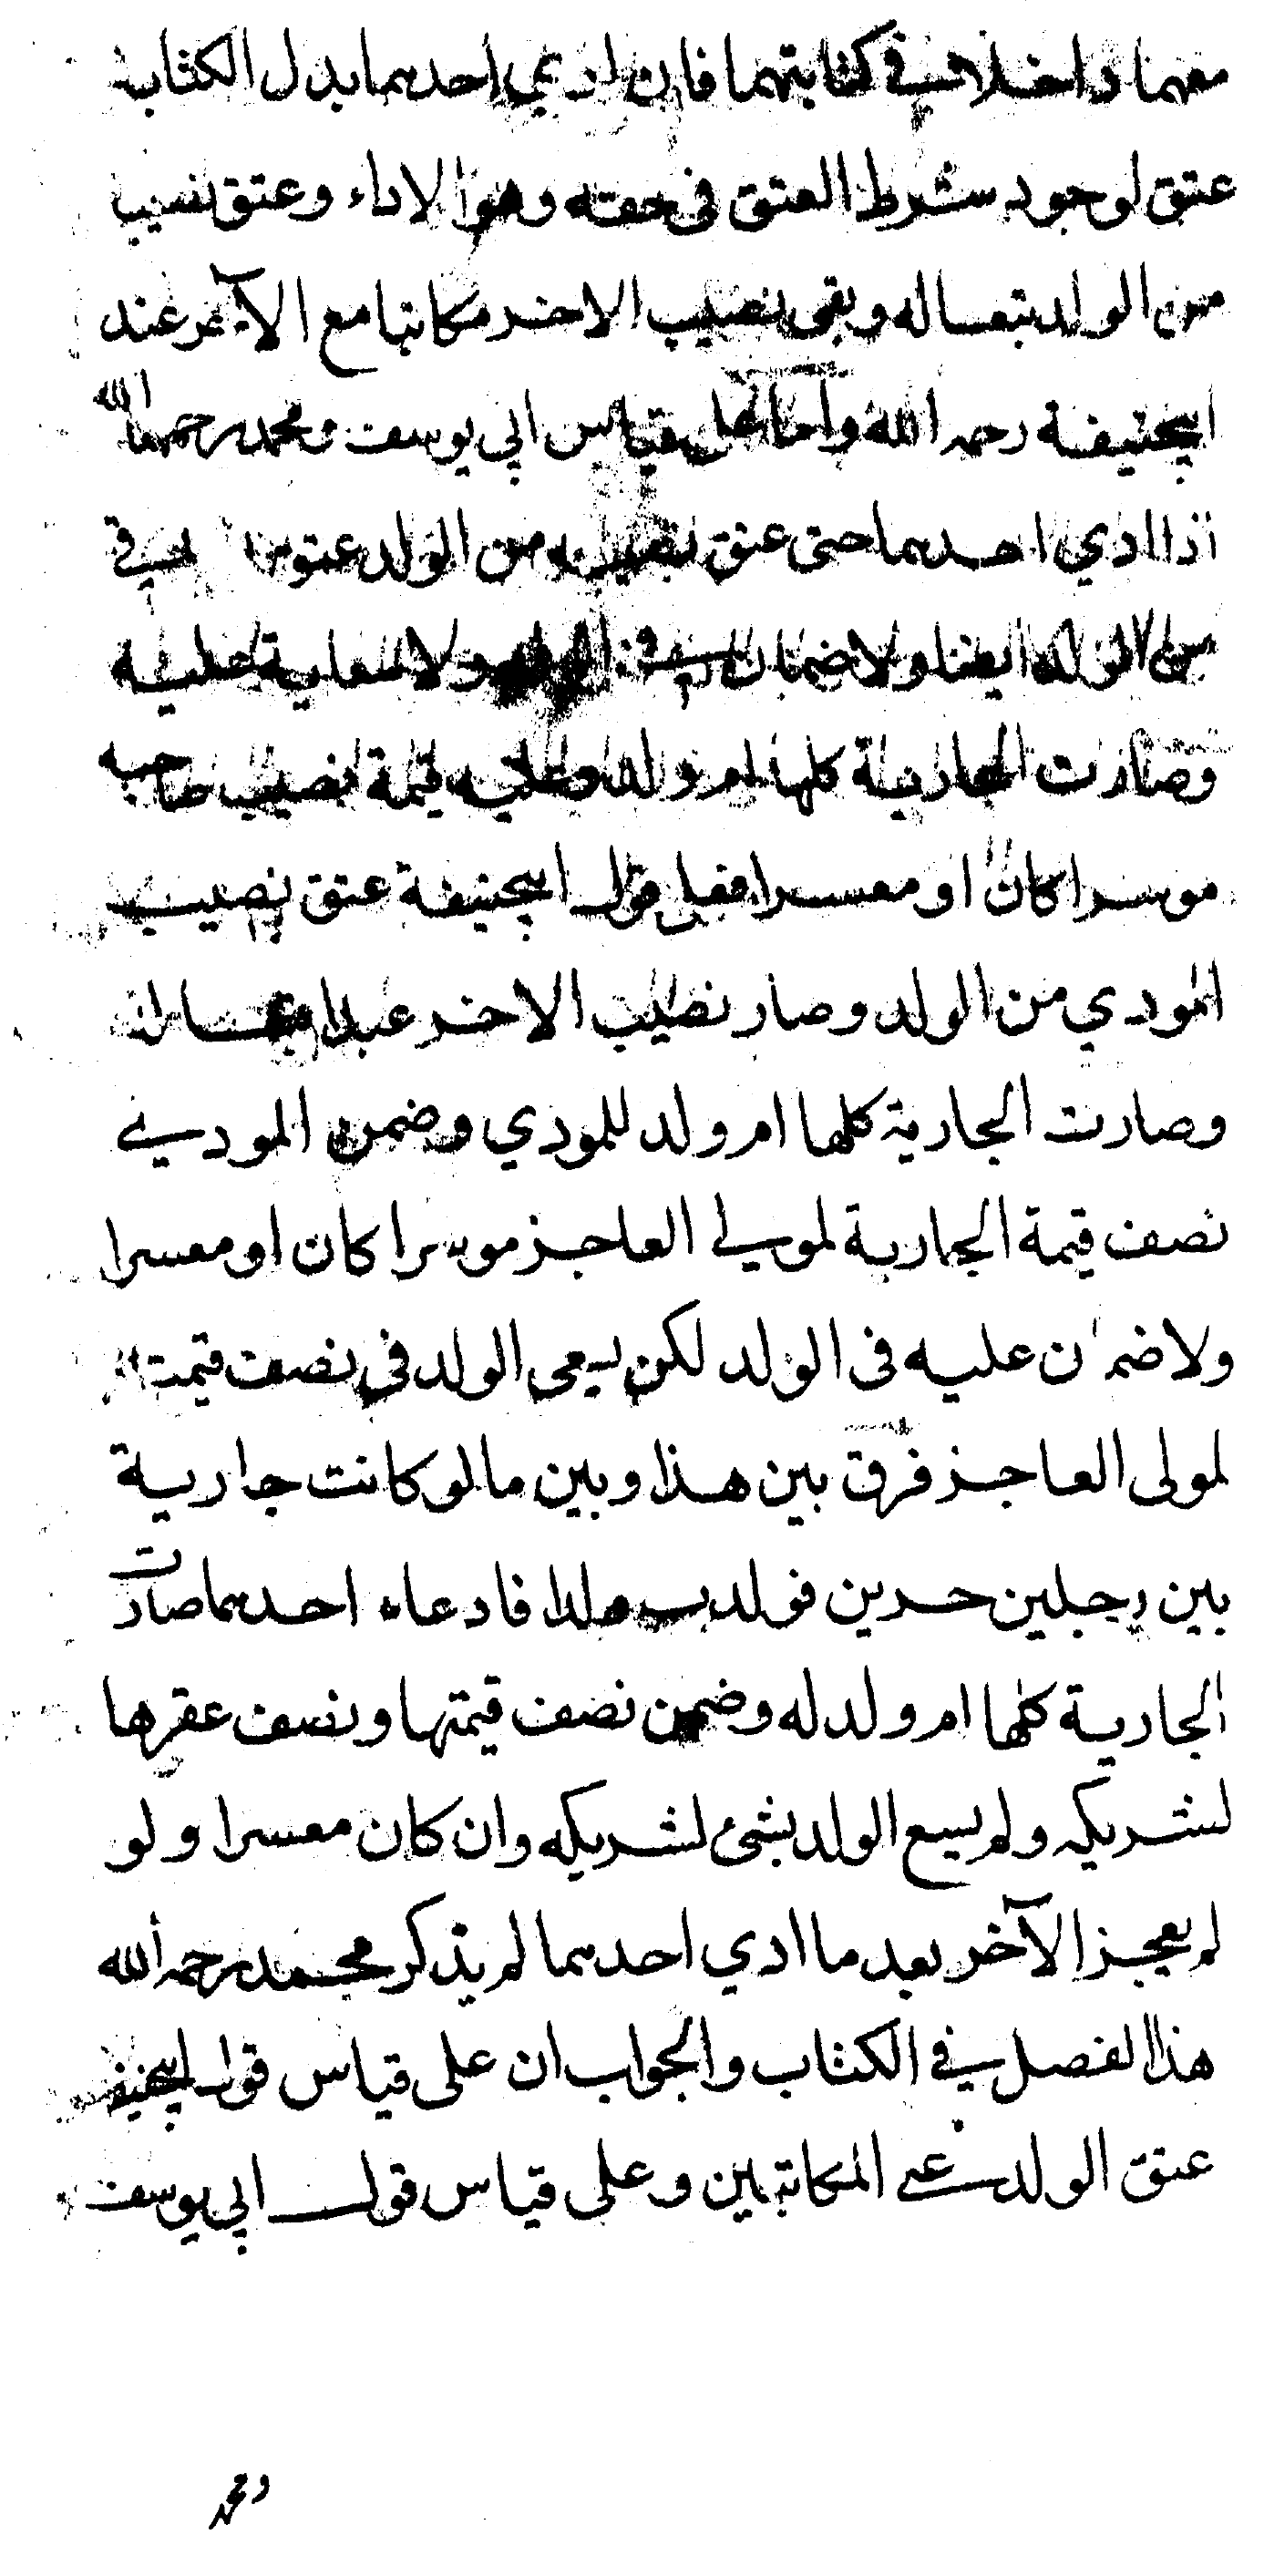 معهما داخلا في كتابتهما فان ادي احدهما بدل الكتابة
عتق لوجود شرط العتق في حقه وهو الاداء وعتق نصيبه
من الولد تبعا له وبقي نصيب الاخر مكاتبا مع الآخر عند
ابيحنيفة رحمه الله واما على قياس ابي يوسف ومحمد رحمهما الله
اذا ادي احدهما حتى عتق نصيبه من الولد عتق
من الولد ايضا ولا ضمان في الولد ولا سعاية عليه
وصارت الجارية كلها ام ولد وعليه قيمة نصيب صاحبه
موسرا كان او معسرا فعلى قول ابيحنيفة عتق نصيب
المودي من الولد وصار نصيب الاخر عبدا تبعا له
وصارت الجارية كلها ام ولد للمودي وضمن المودي
نصف قيمة الجارية لمولى العاجز موسرا كان او معسرا
ولا ضمان عليه في الولد لكن يسعى الولد في نصف قيمته
لمولى العاجز فرق بين هذا وبين ما لو كانت جارية
بين رجلين حرين فولدت ولدا فادعاه احدهما صارت
الجارية كلها ام ولد له وضمن نصف قيمتها ونصف عقرها
لشريكه ولم يسع الولد بشئ لشريكه وان كان معسرا ولو
لم يعجز الآخر بعد ما ادي احدهما لم يذكر محمد رحمه الله
هذا الفصل في الكتاب والجواب ان على قياس قول ابيحنيفة
عتق الولد على المكاتبين وعلى قياس قول ابي يوسف
ومحمد